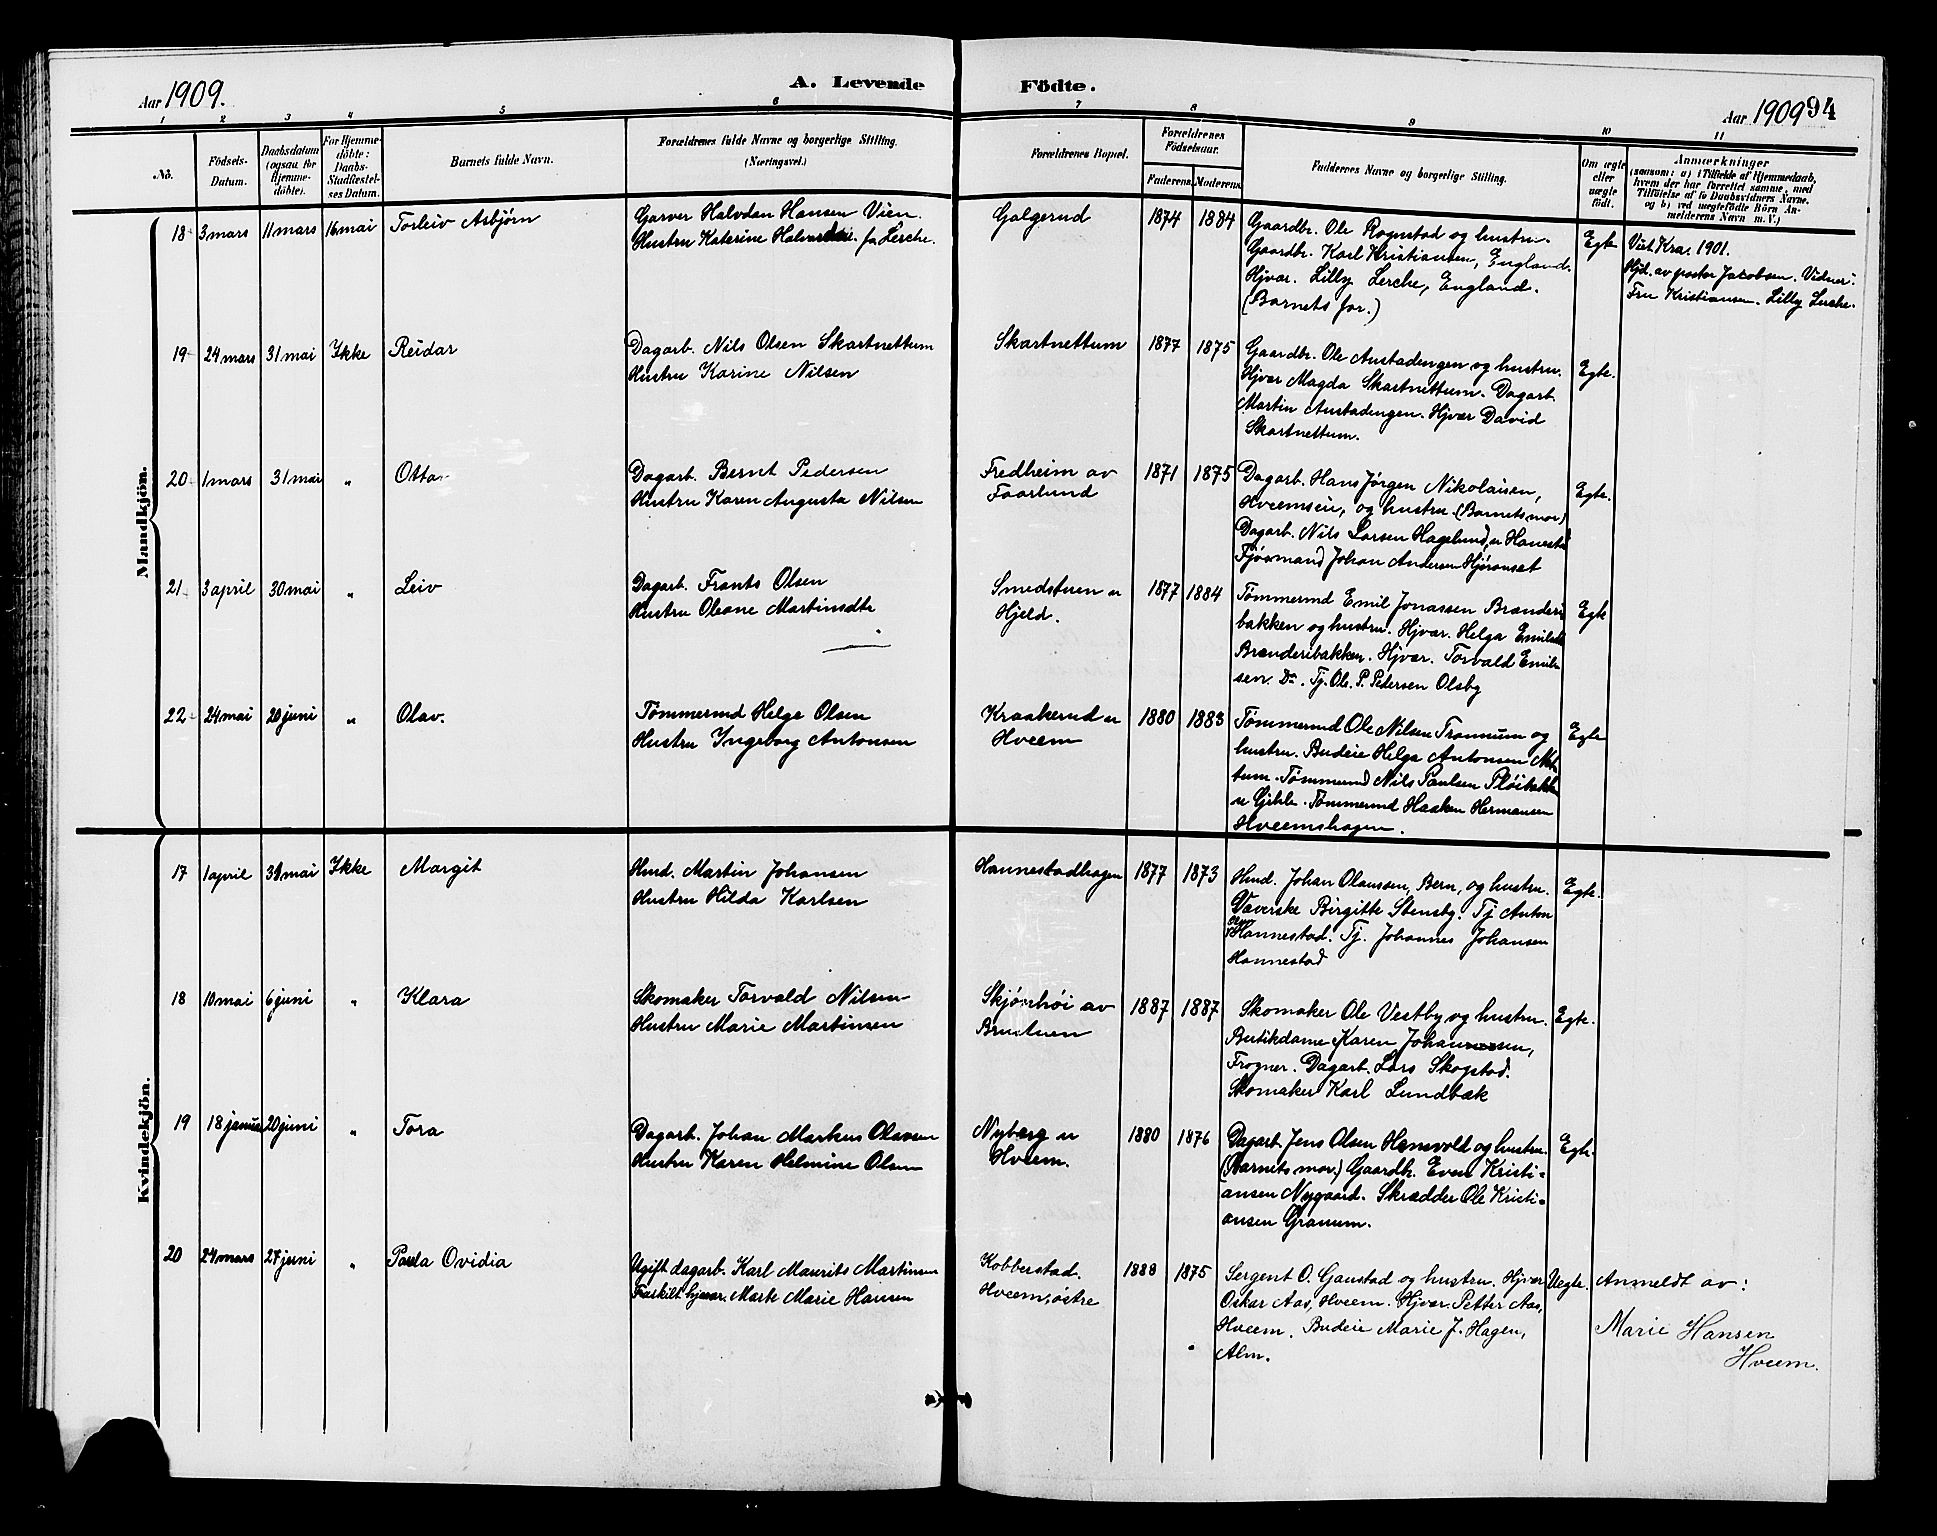 Aar 1909.
A. Levende Födte.
Aar 1909 94
1 2 3 4 5 6 7 8 9 10 11
No.
Födsels-Datum.
Daabsdatum (ogsaa for Hjemme-döbte).
For Hjemme-döbte: Daabs-Stadfæstel-ses Datum.
Barnets fulde Navn.
Forældrenes fulde Navne og borgerlige Stilling.
(Næringsvei.)
Forældrenes Bopæl.
Forældrenes Födselsaar.
Faderens. Moderens.
Faddernes Navne og borgerlige Stilling.
Om ægte eller uægte födt.
Anmærkninger
(saasom: a) i Tilfælde af Hjemmedaab,
hvem der har forrettet samme, med
Tilföielse af to Daabsvidners Navne.
og b) ved uægtefödte Börn An-
melderens Navn m. V.)
Mandkjön.
18 3 mars 11 mars 16 mai Torleiv Asbjørn
Garver Halvdan Hansen Vien
Hustru Katerine f. Lerche.
Galgerud 1874 1884
Gaardbr. Ole Rognstad og hustru.
Gaardbr. Karl Kristiansen, England.
Hjvær. Lilly Lerche, England.
(Barnets far.)
Egte
Viet Kra. 1901.
Hjd. av pastor Jacobsen. Vidner:
Fru Kristiansen. Lilly Lerche.
19 24 mars 31 mai Ikke Reidar
Dagarb. Nils Olsen Skartnettum
Hustru Karine Nilsen
Skartnettum 1877 1875
Gaardbr. Ole Anstadengen og hustru.
Hjvær Magda Skartnettum. Dagarb.
Martin Anstadengen. Hjvær David
Skartnettum.
Egte.
20 1 mars 31 mai " Ottar
Dagarb. Bernt Pedersen
Hustru Karen Augusta Nilsen
Fredheim av
Faarlund
1871 1875
Dagarb. Hans Jørgen Nikolaisen,
Hveemseie, og hustru (Barnets mor)
Dagarb. Nils Larsen Hagelund u Hanestad
Fjøsmand Johan Andersen
Egte.
21 3 april 30 mai " Leiv
Dagarb. Frants Olsen
Hustru Oleane Martinsdtr
Smedstuen u
Hjeld.
1877 1884
Tømmermd Emil Jonassen Brænderi-
bakken og hustru. Hjvær. Helga Emilsdtr
Brænderibakken. Hjvær. Torvald Emil-
sen. Do. Tj. Ole P. Pedersen Olsby
Egte
22 24 mai 20 juni " Olav.
Tømmermd Helge Olsen
Hustru Ingeborg Antonsen
Kraakerud u
Hveem
1880 1883
Tømmermd Ole Nilsen Tronnum og
hustru. Budeie Helga Antonsen Net-
tum. Tømmermd Nils Paulsen Pløibakken
u Gihle. Tømmermd Haaken Hermansen
Hveemshagen.
Egte
Kvindekjön.
17 1 april 31 mai Ikke Margit
Hmd. Martin Johansen
Hustru Hilda Karlsen
Hannestadhagen 1877 1873
Hmd. Johan Olaussen, Bern, og hustru.
Væverske Birgitte Stensby. Tj Anton
Hannestad. Tj. Johannes Johansen
Hannestad
Egte.
18 10 mai 6 juni " Klara
Skomaker Torvald Nilsen
Hustru Marie Martinsen
Skjønhøi av
1887 1887
Skomaker Ole Vestby og hustru.
Butikdame Karen Johannessen,
Frogner. Dagarb. Lars Skogstad.
Skomaker Karl Lundbæk
Egte.
19 18 januar 20 juni " Tora
Dagarb. Johan Markus Olavsen
Hustru Karen Helmine Olsen
Nyberg u
Hveem.
1880 1876
Dagarb. Jens Olsen Hemsvold og hustru.
(Barnets mor) Gaardbr. Even Kristi-
ansen Nygaard. Skrædder Ole Kristi-
ansen Granum.
Egte.
20 24 mars 27 juni " Paula Ovidia
Ugift dagarb. Karl Maurits Martinsen
Fraskilt hjvær. Marte Marie Hansen
Kobberstad.
Hveem, østre
1888 1875
Sergent O. Gaustad og hustru. Hjvær
Oskar Aas, Hveem. Hjvær. Petter Aas,
Hveem. Budeie Marie J. Hagen,
Alm.
Uegte.
Anmeldt av:
Marie Hansen
Hveem.